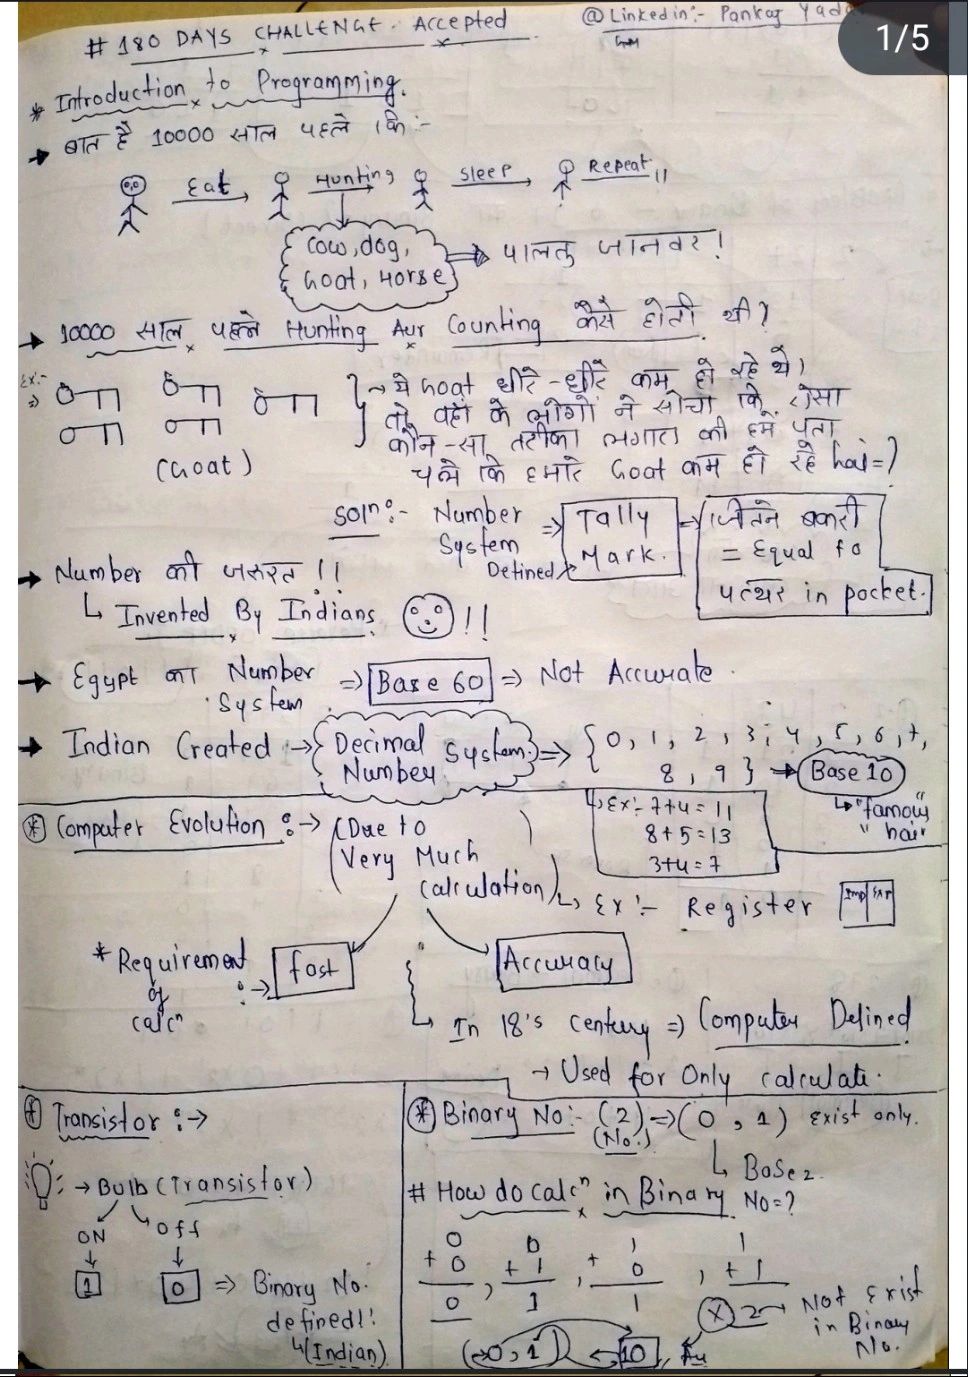 # 180 DAYS CHALLENGE. Accepted
@Linkedin:- Pankaj Yada
1/5
* Introduction to Programming.
→ बात है 10000 साल पहले कि:-
Eat → Hunting → Sleep → Repeat!!
Cow, dog,
Goat, Horse ⇒ पालतु जानवर!
→ 10000 साल पहले Hunting Aur Counting कैसे होती थी?
Ex:-
⇒
(Goat)
} → ये Goat धीरे-धीरे कम हो रहे थे।
तो वहाँ के लोगों ने सोचा कि ऐसा
कौन-सा तरीका लगाए की हमें पता
चले कि हमारे Goat कम हो रहे hai=?
Solⁿ:- Number System Defined ⇒ Tally Mark. ⇒ जितने बकरी = Equal to पत्थर in pocket.
→ Number की जरुरत !!
↳ Invented By Indians !!
→ Egypt का Number System ⇒ Base 60 ⇒ Not Accurate.
→ Indian Created :→ Decimal Number System ⇒ {0, 1, 2, 3, 4, 5, 6, 7,
8, 9} → Base 10
↳ "famous"
"hai"
↳ Ex:- 7+4 = 11
8+5=13
3+4=7
* Computer Evolution :→ (Due to
Very Much
Calculation)
↳ Ex:- Register Imp Exp
* Requirement
of
calcⁿ :→ fast
Accuracy
↳ In 18's century ⇒ Computer Defined
→ Used for Only calculate.
* Transistor :→
: → Bulb (Transistor)
ON Off
1 0 ⇒ Binary No.
defined!!
↳ (Indian)
* Binary No:- (2) ⇒ (0, 1) Exist only.
(No.)
↳ Base 2
# How do calcⁿ in Binary No=?
0 0 1 1
+0 , +1 , +0 , +1
0 1 1 (X) 2 → Not Exist
in Binary
No.
(0, 1) ← 10